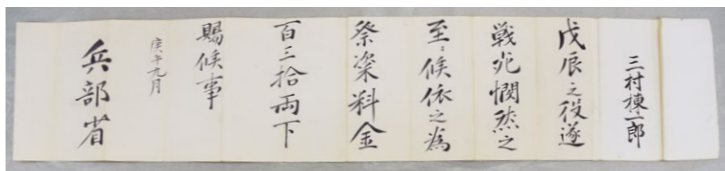 三村棟一郎
戊辰之役遂
戦死憫然之
至ニ候依之為
祭粢料金
百三拾両下
賜候事
庚午九月
兵部省